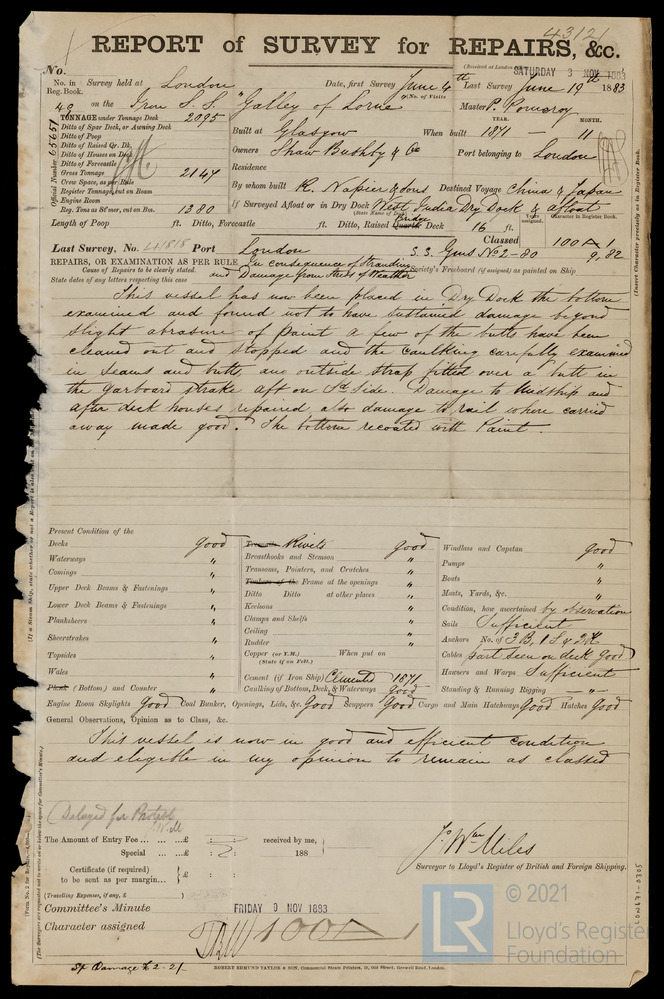 43121
REPORT of SURVEY for REPAIRS, &c.
(Received at London
SATURDAY 3 NOV 1883
No.
No. in Reg. Book. Survey held at London Date, first Survey June 4th Last Survey June 19th 1883
(No. of Visits
49 on the Iron S.S. "Galley of Lorne" Master P. Pomeroy
TONNAGE under Tonnage Deck 2095
Ditto of Spar Deck, or Awning Deck
Ditto of Poop
Ditto of Raised Qr. Dk.
Ditto of Houses on Deck
Ditto of Forecastle
Gross Tonnage 2147
Crew Space, as per Rule
Register Tonnage, cut on Beam
Engine Room
Reg. Tons as St'mer, cut on Bm. 1380
Official Number 65651
YEAR. MONTH.
Built at Glasgow When built 1871 - 11
Owners Shaw Bushby & Co Port belonging to London
Residence
By whom built R. Napier & Sons Destined Voyage China & Japan
If Surveyed Afloat or in Dry Dock West India Dry Dock & afloat
(State Name of Dock)
Years assigned. Character in Register Book.
Length of Poop ft. Ditto, Forecastle ft. Ditto, Raised Quarter Bridge Deck 16 ft.
Classed 100 A 1
9,82
Last Survey, No. Port London S.S. Gms No 2-80
REPAIRS, OR EXAMINATION AS PER RULE In consequence of Stranding
Cause of Repairs to be clearly stated. and Damage from Stress of Weather Society's Freeboard (if assigned) as painted on Ship
State dates of any letters respecting this case
This vessel has now been placed in Dry Dock the bottom
examined and found not to have sustained damage beyond
slight abrasure of paint a few of the butts have been
cleaned out and stopped and the caulking carefully examined
in seams and butts one outside strap fitted over a butt in
the garboard strake aft on Sd side. Damage to Midship and
after deck houses repaired, also damage to rail where carried
away made good. The bottom recoated with Paint.
Present Condition of the
Decks Good
Waterways "
Comings "
Upper Deck Beams & Fastenings "
Lower Deck Beams & Fastenings "
Planksheers "
Sheerstrakes "
Topsides "
Wales "
Plank (Bottom) and Counter "
Rivets Good
Breasthooks and Stemson "
Transoms, Pointers, and Crutches "
Timbers of the Frame at the openings "
Ditto Ditto at other places "
Keelsons "
Clamps and Shelfs "
Ceiling "
Rudder "
Copper (or Y.M.) When put on
(State if on Felt.)
Cement (if Iron Ship) Cemented 1871
Caulking of Bottom, Deck, & Waterways Good
Windlass and Capstan Good
Pumps "
Boats "
Masts, Yards, &c. "
Condition, how ascertained by observation
Sails Sufficient
Anchors No. of 3 B, 1 S & 2 K
Cables part seen on deck Good
Hawsers and Warps Sufficient
Standing & Running Rigging "
Engine Room Skylights Good Coal Bunker, Openings, Lids, &c. Good Scuppers Good Cargo and Main Hatchways Good Hatches Good
General Observations, Opinion as to Class, &c.
This vessel is now in good and efficient condition
and eligible in my opinion to remain as classed
Delayed for Protest
The Amount of Entry Fee ... ... ...£ : : received by me,
Special ... ...£ : : 188
Certificate (if required) to be sent as per margin... £ : :
(Travelling Expenses, if any, £ )
Jno Wm Miles
Surveyor to Lloyd's Register of British and Foreign Shipping.
Committee's Minute FRIDAY 9 NOV 1883
Character assigned 100 A 1
ROBERT EDMUND TAYLOR & SON, Commercial Steam Printers, 19, Old Street, Goswell Road, London.
(Insert Character precisely as in Register Book.
LON671-0305
LR
© 2021
Lloyd's Register
Foundation